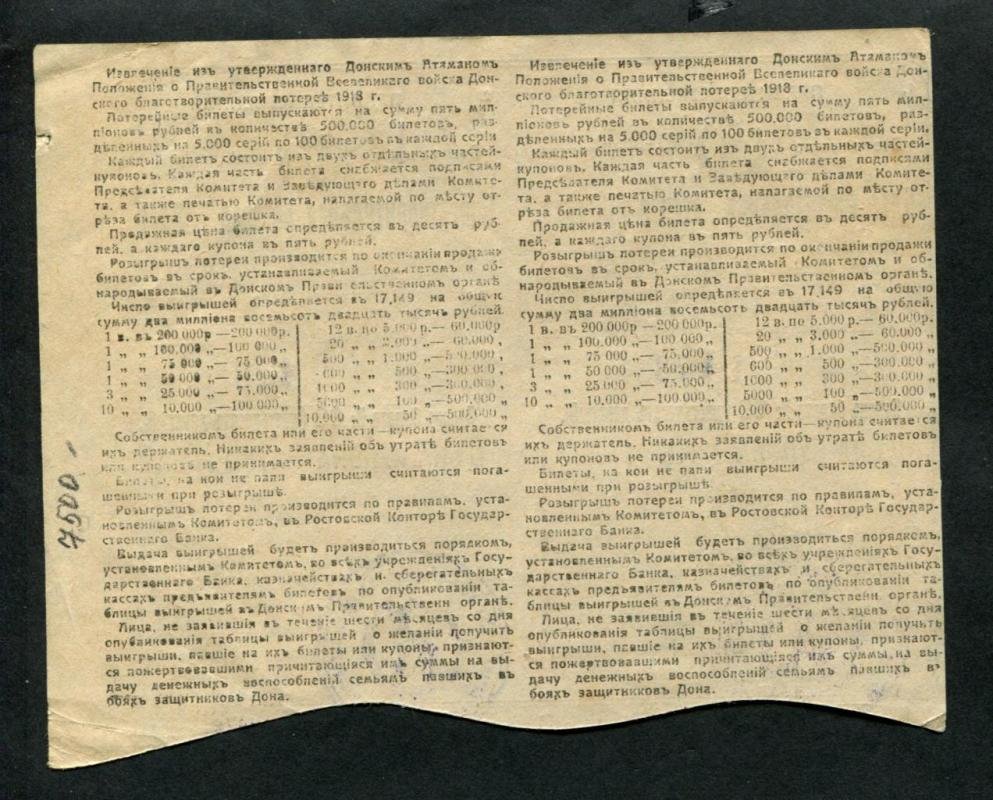 Извлеченіе изъ утвержденнаго Донскимъ Атаманомъ
Положенія о Правительственной Всевеликаго войска Дон-
ского благотворительной лотереѣ 1918 г.
Лотерейные билеты выпускаются на сумму пять мил-
ліоновъ рублей въ количествѣ 500.000 билетовъ, раз-
дѣленныхъ на 5.000 серій по 100 билетовъ въ каждой серіи
Каждый билетъ состоитъ изъ двухъ отдѣльныхъ частей-
купоновъ. Каждая часть билета снабжается подписями
Предсѣдателя Комитета и Завѣдующаго дѣлами Комите-
та, а также печатью Комитета, налагаемой по мѣсту от-
рѣза билета отъ корешка.
Продажная цѣна билета опредѣляется въ десять руб-
лей, а каждаго купона въ пять рублей.
Розыгрышъ лотереи производится по окончаніи продажи
билетовъ въ срокъ, устанавливаемый Комитетомъ и об-
народываемый въ Донскомъ Правительственномъ органѣ
Число выигрышей опредѣляется въ 17,149 на общую
сумму два милліона восемьсотъ двадцать тысячъ рублей.
1 в. въ 200 000р —200 000р.
1 „ „ 100,000 „—100 000 „
1 „ „ 75 000 „— 75 000 „
1 „ „ 50 000 „— 50.000 „
3 „ „ 25.000 „— 75.000 „
10 „ „ 10,000 „—100.000 „
12 в. по 5.000 р.— 60.000р
20 „ „ 3.000 „— 60.000 „
500 „ „ 1.000 „—500.000 „
600 „ „ 500 „—300.000 „
1000 „ „ 300 „—300.000 „
5000 „ „ 100 „—500.000 „
10.000 „ „ 50 „—500.000 „
Собственникомъ билета или его части—купона считается
ихъ держатель. Никакихъ заявленій объ утратѣ билетовъ
или купоновъ не принимается.
Билеты, на кои не пали выигрыши считаются пога-
шенными при розыгрышѣ.
Розыгрышъ лотереи производится по правиламъ, уста-
новленнымъ Комитетомъ, въ Ростовской Конторѣ Государ-
ственнаго Банка.
Выдача выигрышей будетъ производиться порядкомъ,
установленнымъ Комитетомъ, во всѣхъ учрежденіяхъ Госу-
дарственнаго Банка, казначействахъ и сберегательныхъ
кассахъ предъявителямъ билетовъ по опубликованіи та-
блицы выигрышей въ Донскомъ Правительственн органѣ.
Лица, не заявившія въ теченіе шести мѣсяцевъ со дня
опубликованія таблицы выигрышей о желаніи получить
выигрыши, павшіе на ихъ билеты или купоны, признают-
ся пожертвовавшими причитающіяся имъ суммы на вы-
дачу денежныхъ воспособленій семьямъ павшихъ въ
бояхъ защитниковъ Дона.
Извлеченіе изъ утвержденнаго Донскимъ Атаманомъ
Положенія о Правительственной Всевеликаго войска Дон-
ского благотворительной лотереѣ 1918 г.
Лотерейные билеты выпускаются на сумму пять мил-
ліоновъ рублей въ количествѣ 500.000 билетовъ, раз-
дѣленныхъ на 5.000 серій по 100 билетовъ въ каждой серіи.
Каждый билетъ состоитъ изъ двухъ отдѣльныхъ частей-
купоновъ. Каждая часть билета снабжается подписями
Предсѣдателя Комитета и Завѣдующаго дѣлами Комите-
та, а также печатью Комитета, налагаемой по мѣсту от-
рѣза билета отъ корешка.
Продажная цѣна билета опредѣляется въ десять руб-
лей, а каждаго купона въ пять рублей.
Розыгрышъ лотереи производится по окончаніи продажи
билетовъ въ срокъ, устанавливаемый Комитетомъ и об-
народываемый въ Донскомъ Правительственномъ органѣ.
Число выигрышей опредѣляется въ 17,149 на общую
сумму два милліона восемьсотъ двадцать тысячъ рублей.
1 в. въ 200 000р —200 000р.
1 „ „ 100.000 „—100 000 „
1 „ „ 75 000 „— 75.000 „
1 „ „ 50 000 „— 50.000 „
3 „ „ 25.000 „— 75.000 „
10 „ „ 10,000 „—100.000 „
12 в. по 5.000 р.— 60.000р.
20 „ „ 3.000 „— 60.000 „
500 „ „ 1.000 „—500.000 „
600 „ „ 500 „—300.000 „
1000 „ „ 300 „—300.000 „
5000 „ „ 100 „—500.000 „
10.000 „ „ 50 „—500.000 „
Собственникомъ билета или его части—купона считается
ихъ держатель. Никакихъ заявленій объ утратѣ билетовъ
или купоновъ не принимается.
Билеты, на кои не пали выигрыши считаются пога-
шенными при розыгрышѣ.
Розыгрышъ лотереи производится по правиламъ, уста-
новленнымъ Комитетомъ, въ Ростовской Конторѣ Государ-
ственнаго Банка.
Выдача выигрышей будетъ производиться порядкомъ,
установленнымъ Комитетомъ, во всѣхъ учрежденіяхъ Госу-
дарственнаго Банка, казначействахъ и сберегательныхъ
кассахъ предъявителямъ билетовъ по опубликованіи та-
блицы выигрышей въ Донскомъ Правительственн органѣ.
Лица, не заявившія въ теченіе шести мѣсяцевъ со дня
опубликованія таблицы выигрышей о желаніи получить
выигрыши, павшіе на ихъ билеты или купоны, признают-
ся пожертвовавшими причитающіяся имъ суммы на вы-
дачу денежныхъ воспособленій семьямъ павшихъ въ
бояхъ защитниковъ Дона.
7500.-